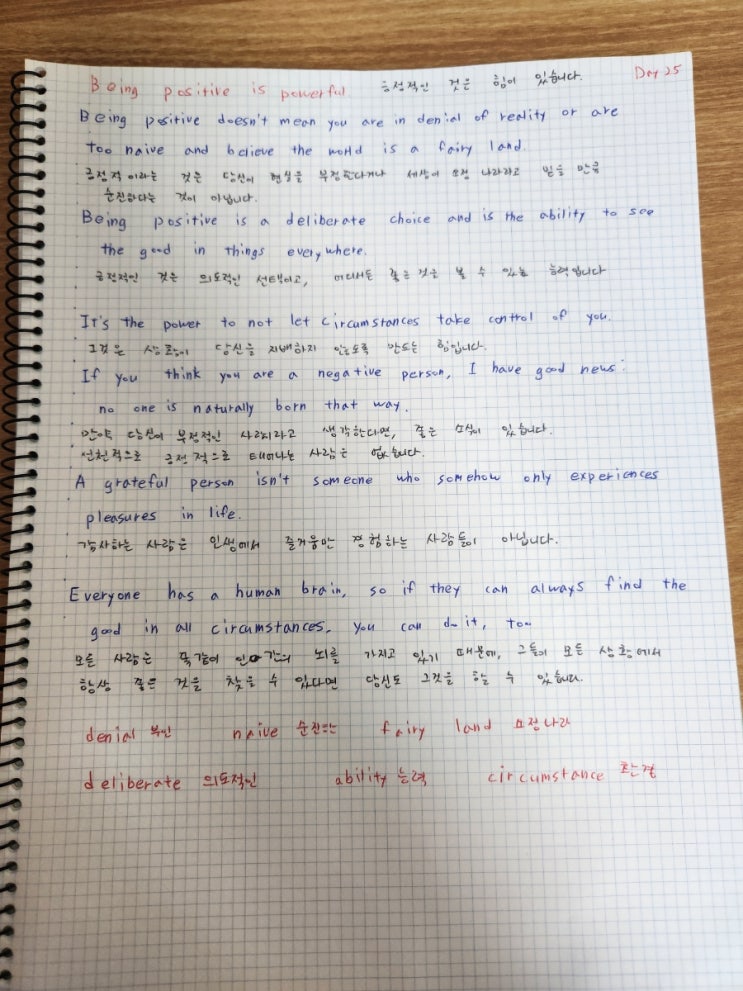 Being positive is powerful 긍정적인 것은 힘이 있습니다. Day 25
Being positive doesn't mean you are in denial of reality or are
too naive and believe the world is a fairy land.
긍정적이라는 것은 당신이 현실을 부정한다거나 세상이 요정 나라라고 믿을 만큼
순진하다는 것이 아닙니다.
Being positive is a deliberate choice and is the ability to see
the good in things everywhere.
긍정적인 것은 의도적인 선택이고, 어디서든 좋은 것을 볼 수 있는 능력입니다
It's the power to not let circumstances take control of you.
그것은 상황이 당신을 지배하지 않도록 만드는 힘입니다.
If you think you are a negative person, I have good news:
no one is naturally born that way.
만약 당신이 부정적인 사람이라고 생각한다면, 좋은 소식이 있습니다.
선천적으로 긍정적으로 태어나는 사람은 없습니다.
A grateful person isn't someone who somehow only experiences
pleasures in life.
감사하는 사람은 인생에서 즐거움만 경험하는 사람들이 아닙니다.
Everyone has a human brain, so if they can always find the
good in all circumstances, you can do it, too.
모든 사람은 똑같이 인간의 뇌를 가지고 있기 때문에, 그들이 모든 상황에서
항상 좋은 것을 찾을 수 있다면 당신도 그것을 할 수 있습니다.
denial 부인 naive 순진한 fairy land 요정나라
deliberate 의도적인 ability 능력 circumstance 환경